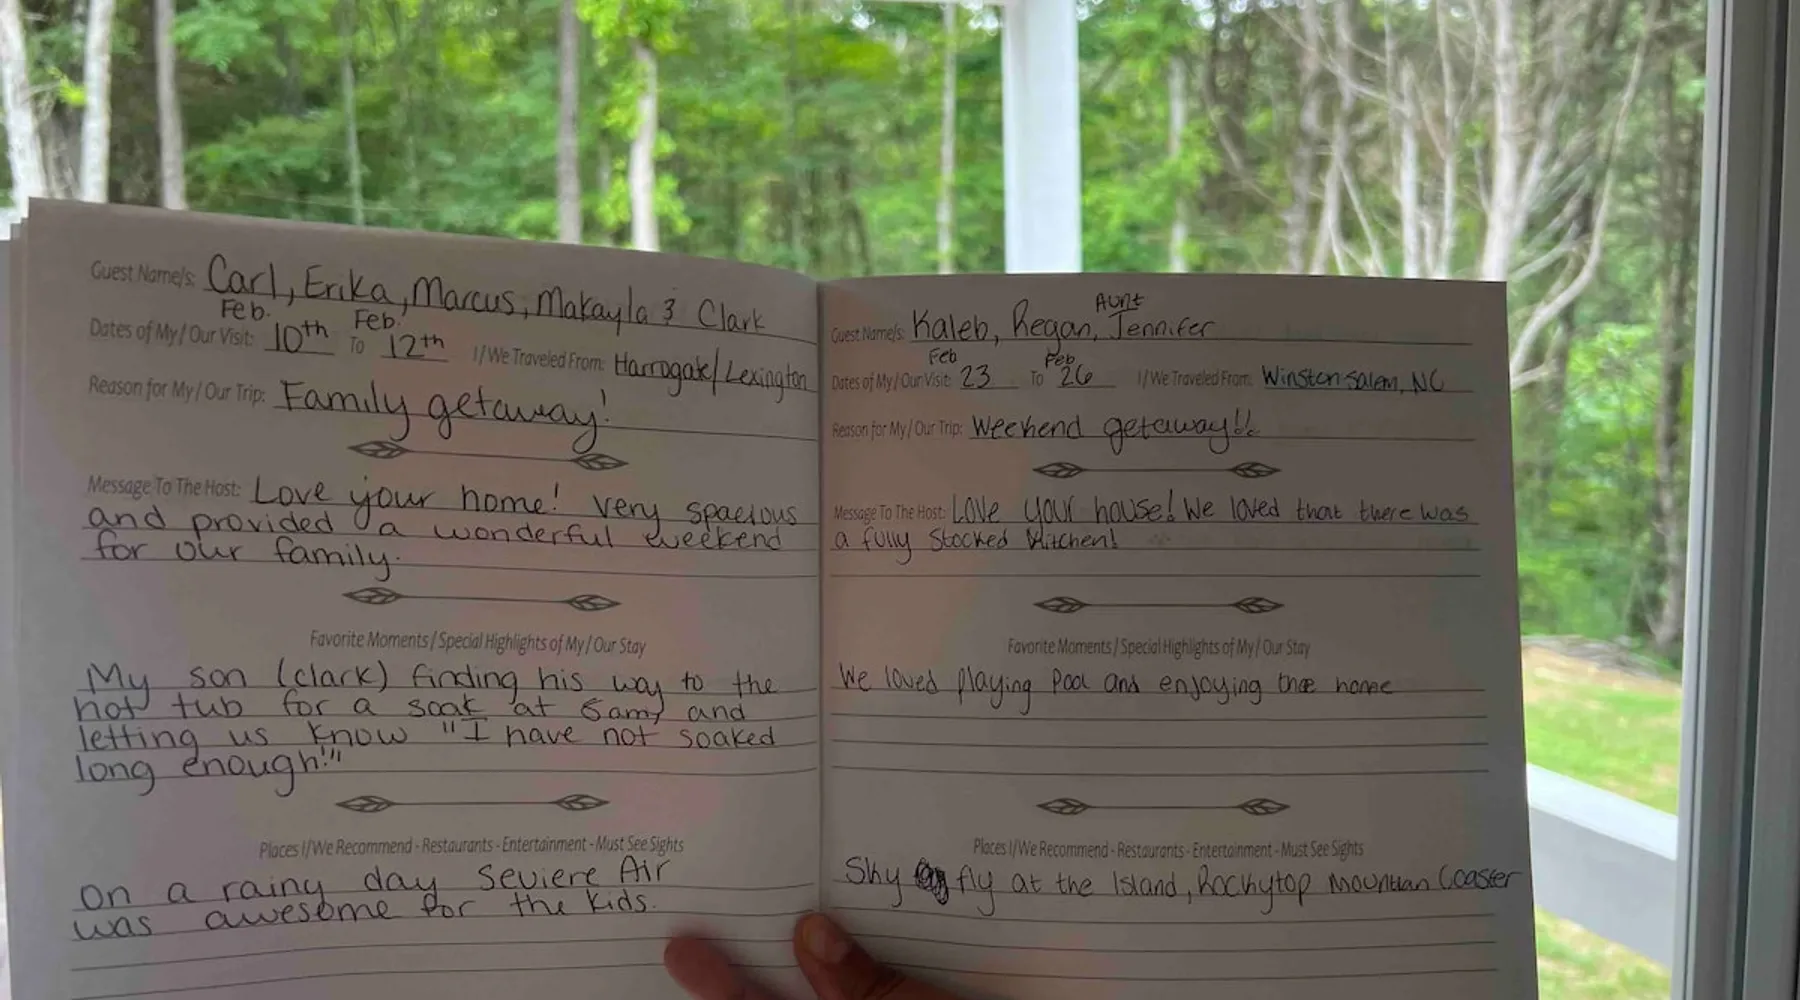 Guest Name/s: Carl, Erika, Marcus, Makayla & Clark
Feb. Feb.
Dates of My/Our Visit: 10th To 12th I/We Traveled From: Harrogate/Lexington
Reason for My/Our Trip: Family getaway!
Message To The Host: Love your home! Very spacious
and provided a wonderful weekend
for our family.
Favorite Moments/Special Highlights of My/Our Stay
My son (clark) finding his way to the
hot tub for a soak at 6am, and
letting us know "I have not soaked
long enough!"
Places I/We Recommend - Restaurants - Entertainment - Must See Sights
On a rainy day Seviere Air
was awesome for the kids.
Aunt
Guest Name/s: Kaleb, Regan, Jennifer
Feb Feb
Dates of My/Our Visit: 23 To 26 I/We Traveled From: Winston salem, NC
Reason for My/Our Trip: Weekend getaway!!
Message To The Host: Love your house! We loved that there was
a fully stocked kitchen!
Favorite Moments/Special Highlights of My/Our Stay
We loved playing pool and enjoying the home
Places I/We Recommend - Restaurants - Entertainment - Must See Sights
Sky fly at the Island, Rockytop Mountian Coaster